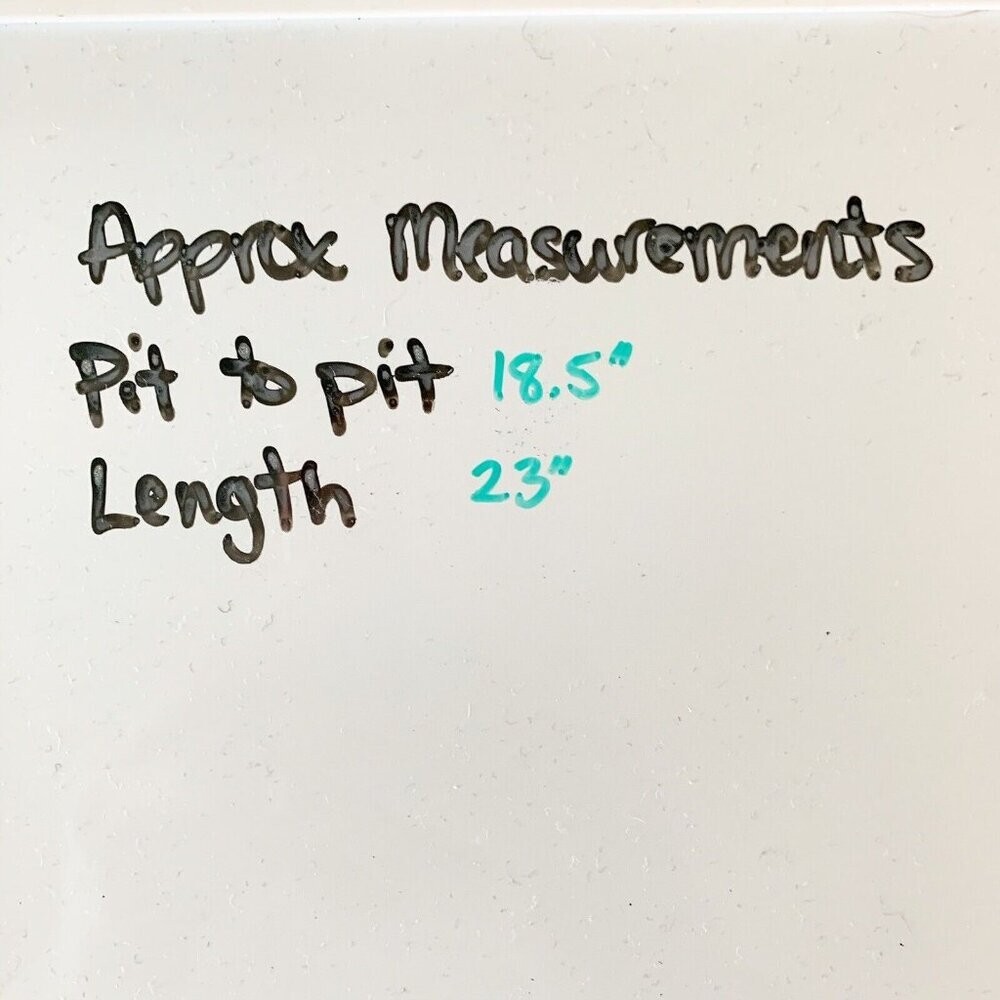 Approx Measurements
Pit to pit 18.5"
Length 23"